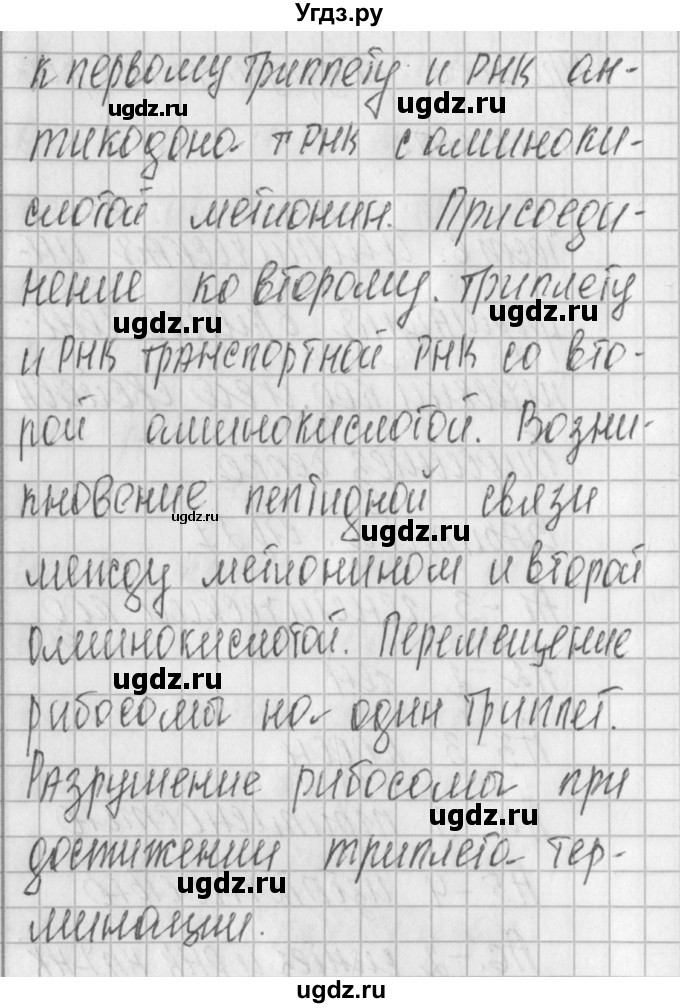 Угдз.ру
к первому триплету и РНК ан-
ugdz.ru
ugdz.ru
тикодона тРНК с аминоки-
слотой метионин. Присоеди-
нение ко второму. триплету
ugdz.ru
ugdz.ru
и РНК транспортной РНК со вто-
рой аминокислотой. Возни-
кновение пептидной связи
ugdz.ru
ugdz.ru
между метионином и второй
аминокислотой. Перемещение
ugdz.ru
рибосомы на один триплет.
Разрушение рибосомы при
ugdz.ru
достижении триплета тер-
ugdz.ru
минации.
ugdz.ru